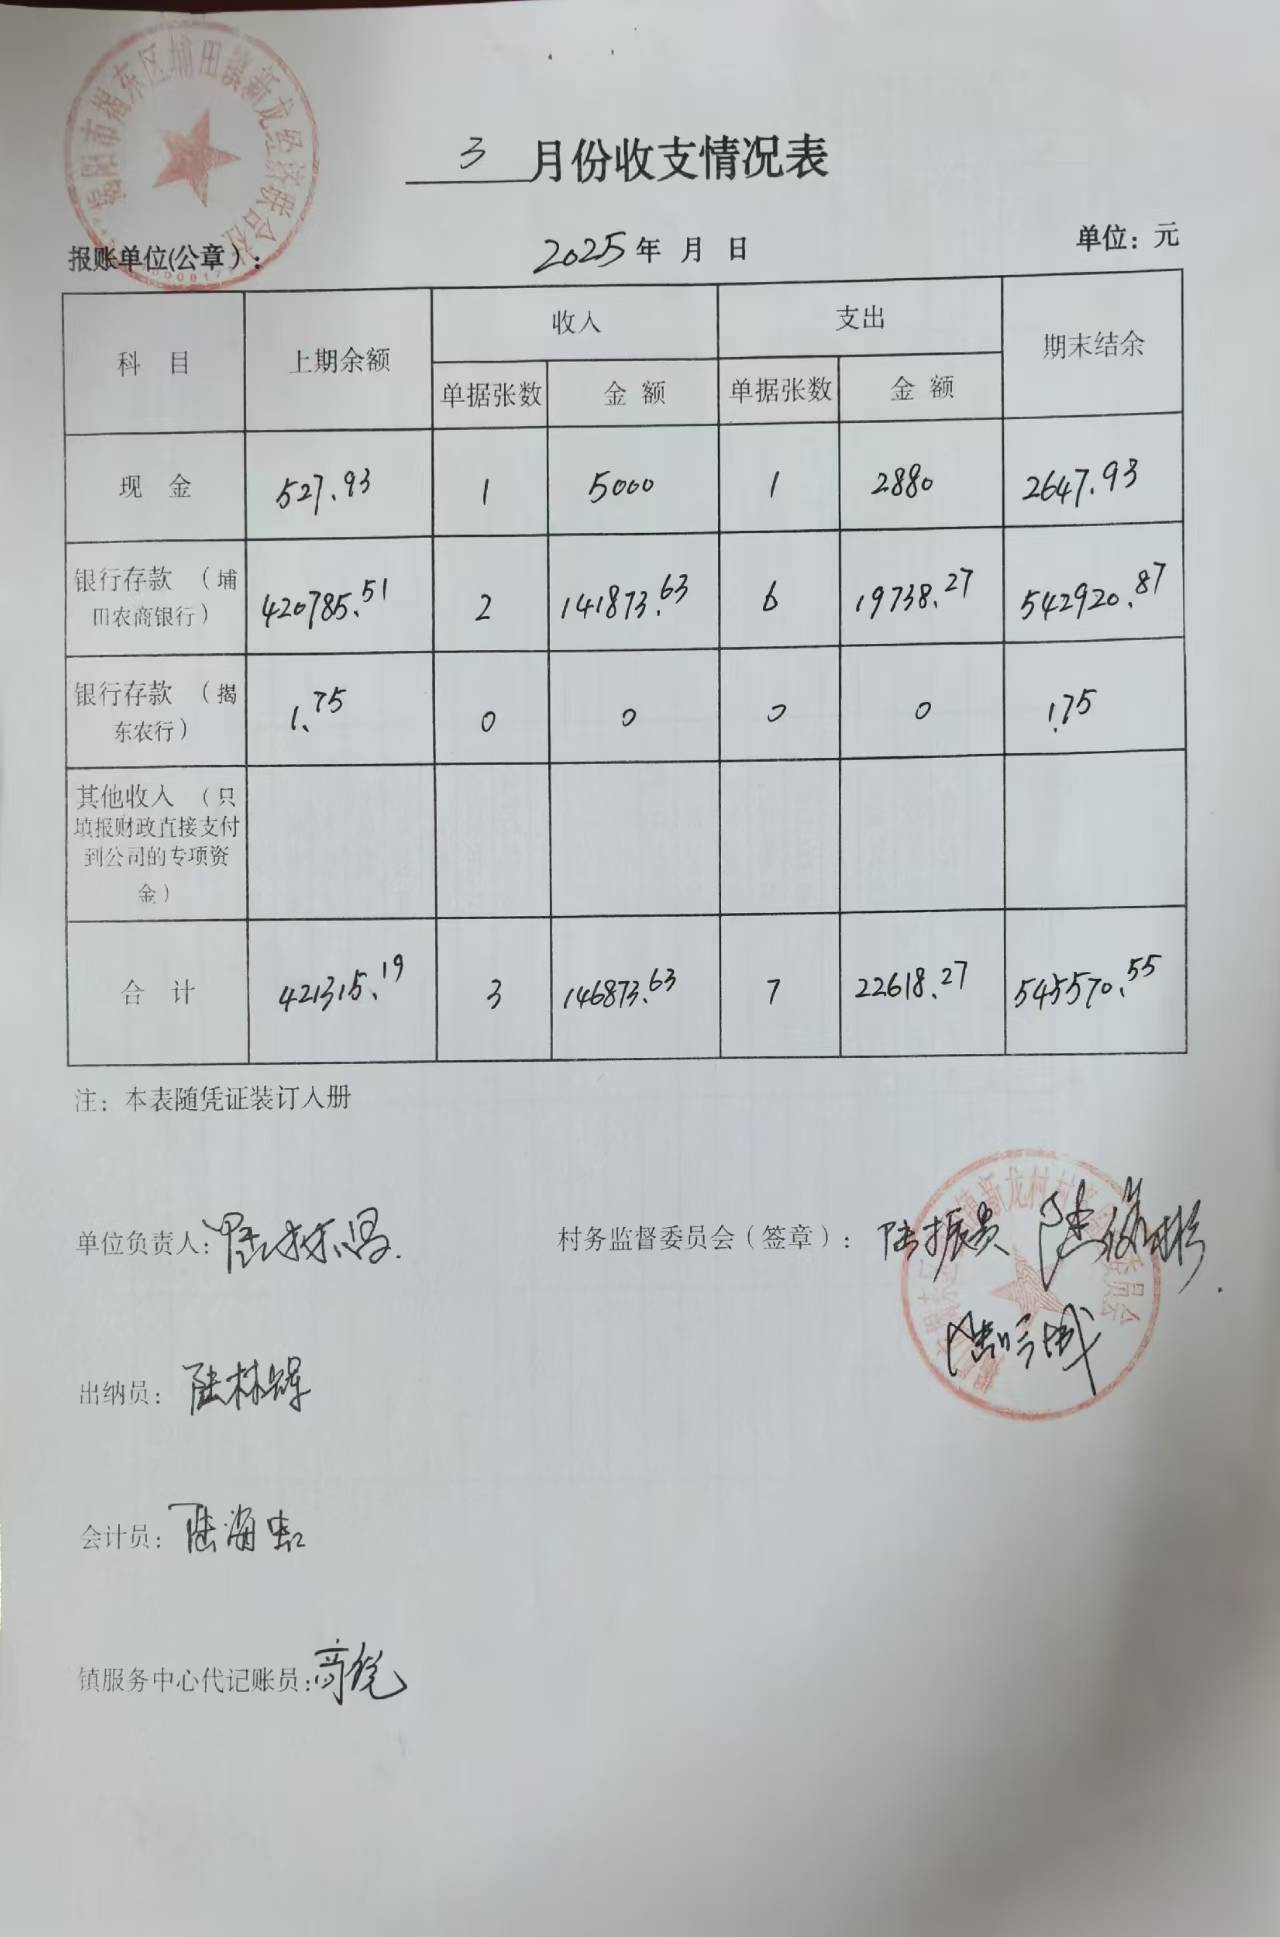 揭阳市揭东区埔田镇新龙经济联合社
3 月份收支情况表
报账单位(公章): 2025年 月 日 单位:元
科 目 上期余额 收入 支出 期末结余
单据张数 金 额 单据张数 金 额
现 金 527.93 1 5000 1 2880 2647.93
银行存款 (埔
田农商银行) 420785.51 2 141873.63 6 19738.27 542920.87
银行存款 (揭
东农行) 1.75 0 0 0 0 1.75
其他收入 (只
填报财政直接支付
到公司的专项资
金)
合 计 421315.19 3 146873.63 7 22618.27 545570.55
注:本表随凭证装订入册
单位负责人: 村务监督委员会(签章): 陆振贵
出纳员: 陆林辉
会计员: 陆海忠
镇服务中心代记账员: